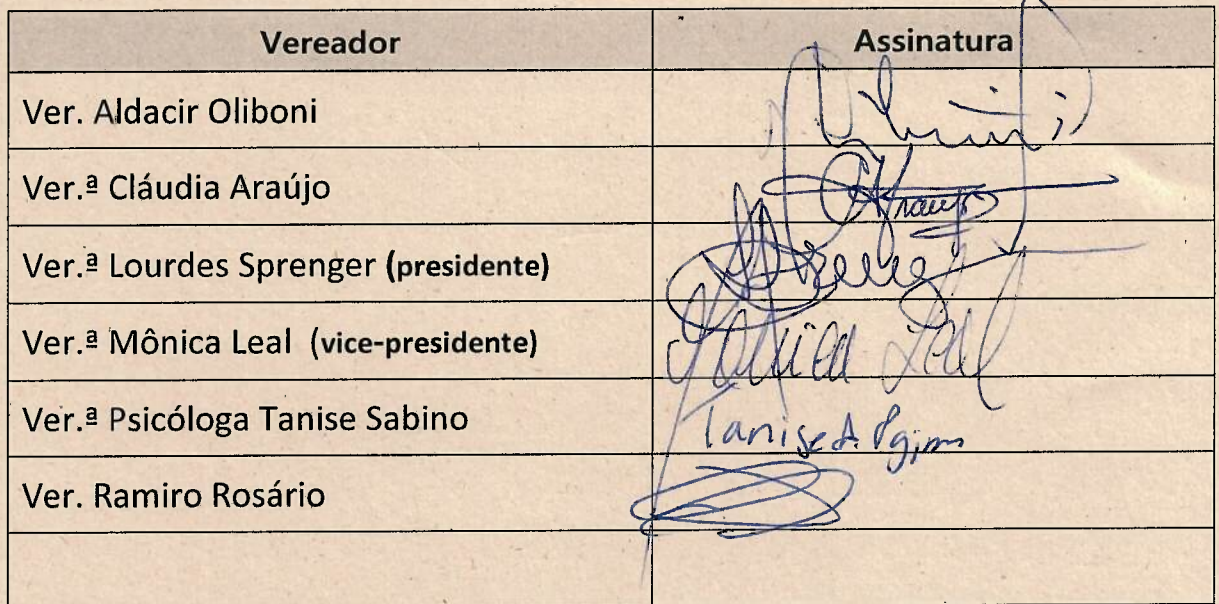 Vereador Assinatura
Ver. Aldacir Oliboni
Ver.ª Cláudia Araújo Araujo
Ver.ª Lourdes Sprenger (presidente)
Ver.ª Mônica Leal (vice-presidente) Mônica Leal
Ver.ª Psicóloga Tanise Sabino Tanise A.
Ver. Ramiro Rosário